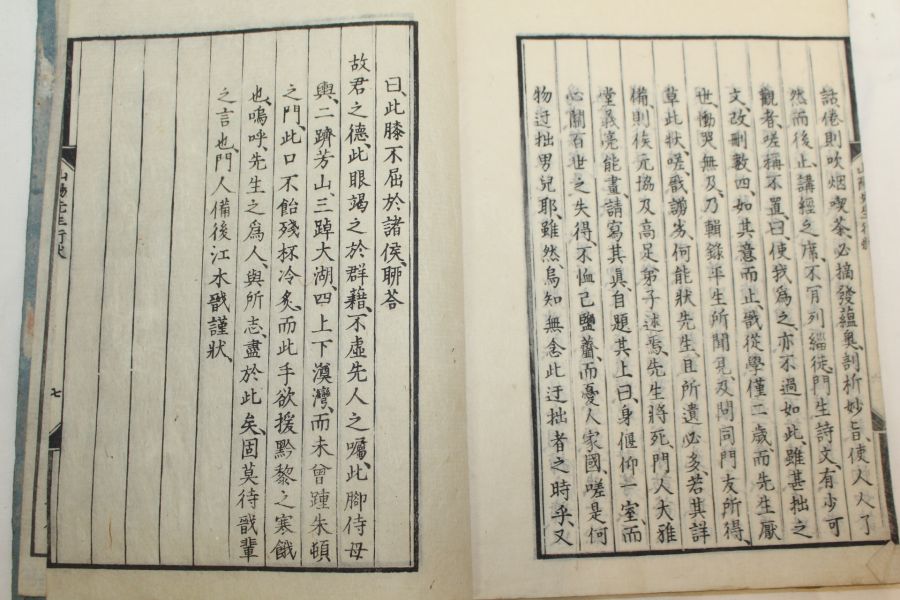 話、倦則吹烟喫茶、必摘發蘊奥、剖析妙旨、使人人了
然而後止、講經之席、不肯列緇徒、門生詩文、有少可
觀者、嗟稱不置、曰使我爲之、亦不過如此、雖甚拙之
文、改刪數四、如其意而止、戩從學僅二歳、而先生厭
世、慟哭無及、乃輯錄平生所聞見、及問同門友所得、
草此狀、嗟、戩謭劣、何能狀先生、且所遺必多、若其詳
備、則俟元協及高足弟子述焉、先生將死、門人大雅
堂義亮能畫、請寫其眞、自題其上曰、身偃仰一室、而
心關百世之失得、不恤己鹽虀、而憂人家國、嗟是何
物迂拙男兒耶、雖然、烏知無念此迂拙者之時乎、又
曰、此膝不屈於諸侯、聊答
故君之德、此眼竭之於群藉、不虛先人之囑、此脚侍母
輿、二躋芳山、三踔大湖、四上下澳灣、而未曾踵朱頓
之門、此口不飴殘杯冷炙、而此手欲援黔黎之寒餓
也、嗚呼、先生之爲人、與所志、盡於此矣、固莫待戩輩
之言也、門人備後江木戩謹狀、
七